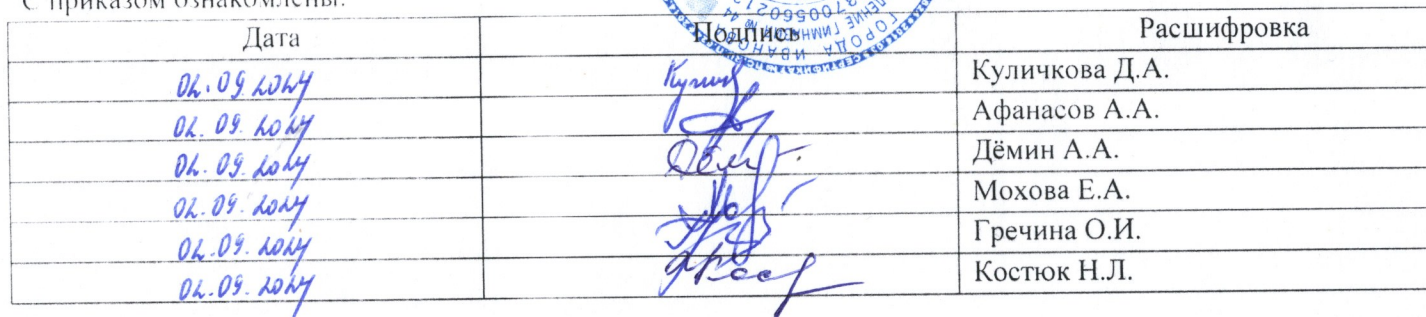 С приказом ознакомлены:
Дата Подпись Расшифровка
02.09.2024 Куличкова Д.А.
02.09.2024 Афанасов А.А.
02.09.2024 Дёмин А.А.
02.09.2024 Мохова Е.А.
02.09.2024 Гречина О.И.
02.09.2024 Костюк Н.Л.
ГОРОДА ИВАНОВА